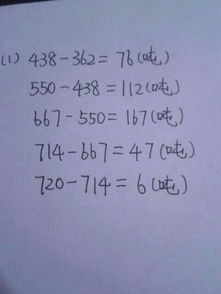 (1) 438-362=76(吨)
550-438=112(吨)
667-550=167(吨)
714-667=47(吨)
720-714=6(吨)